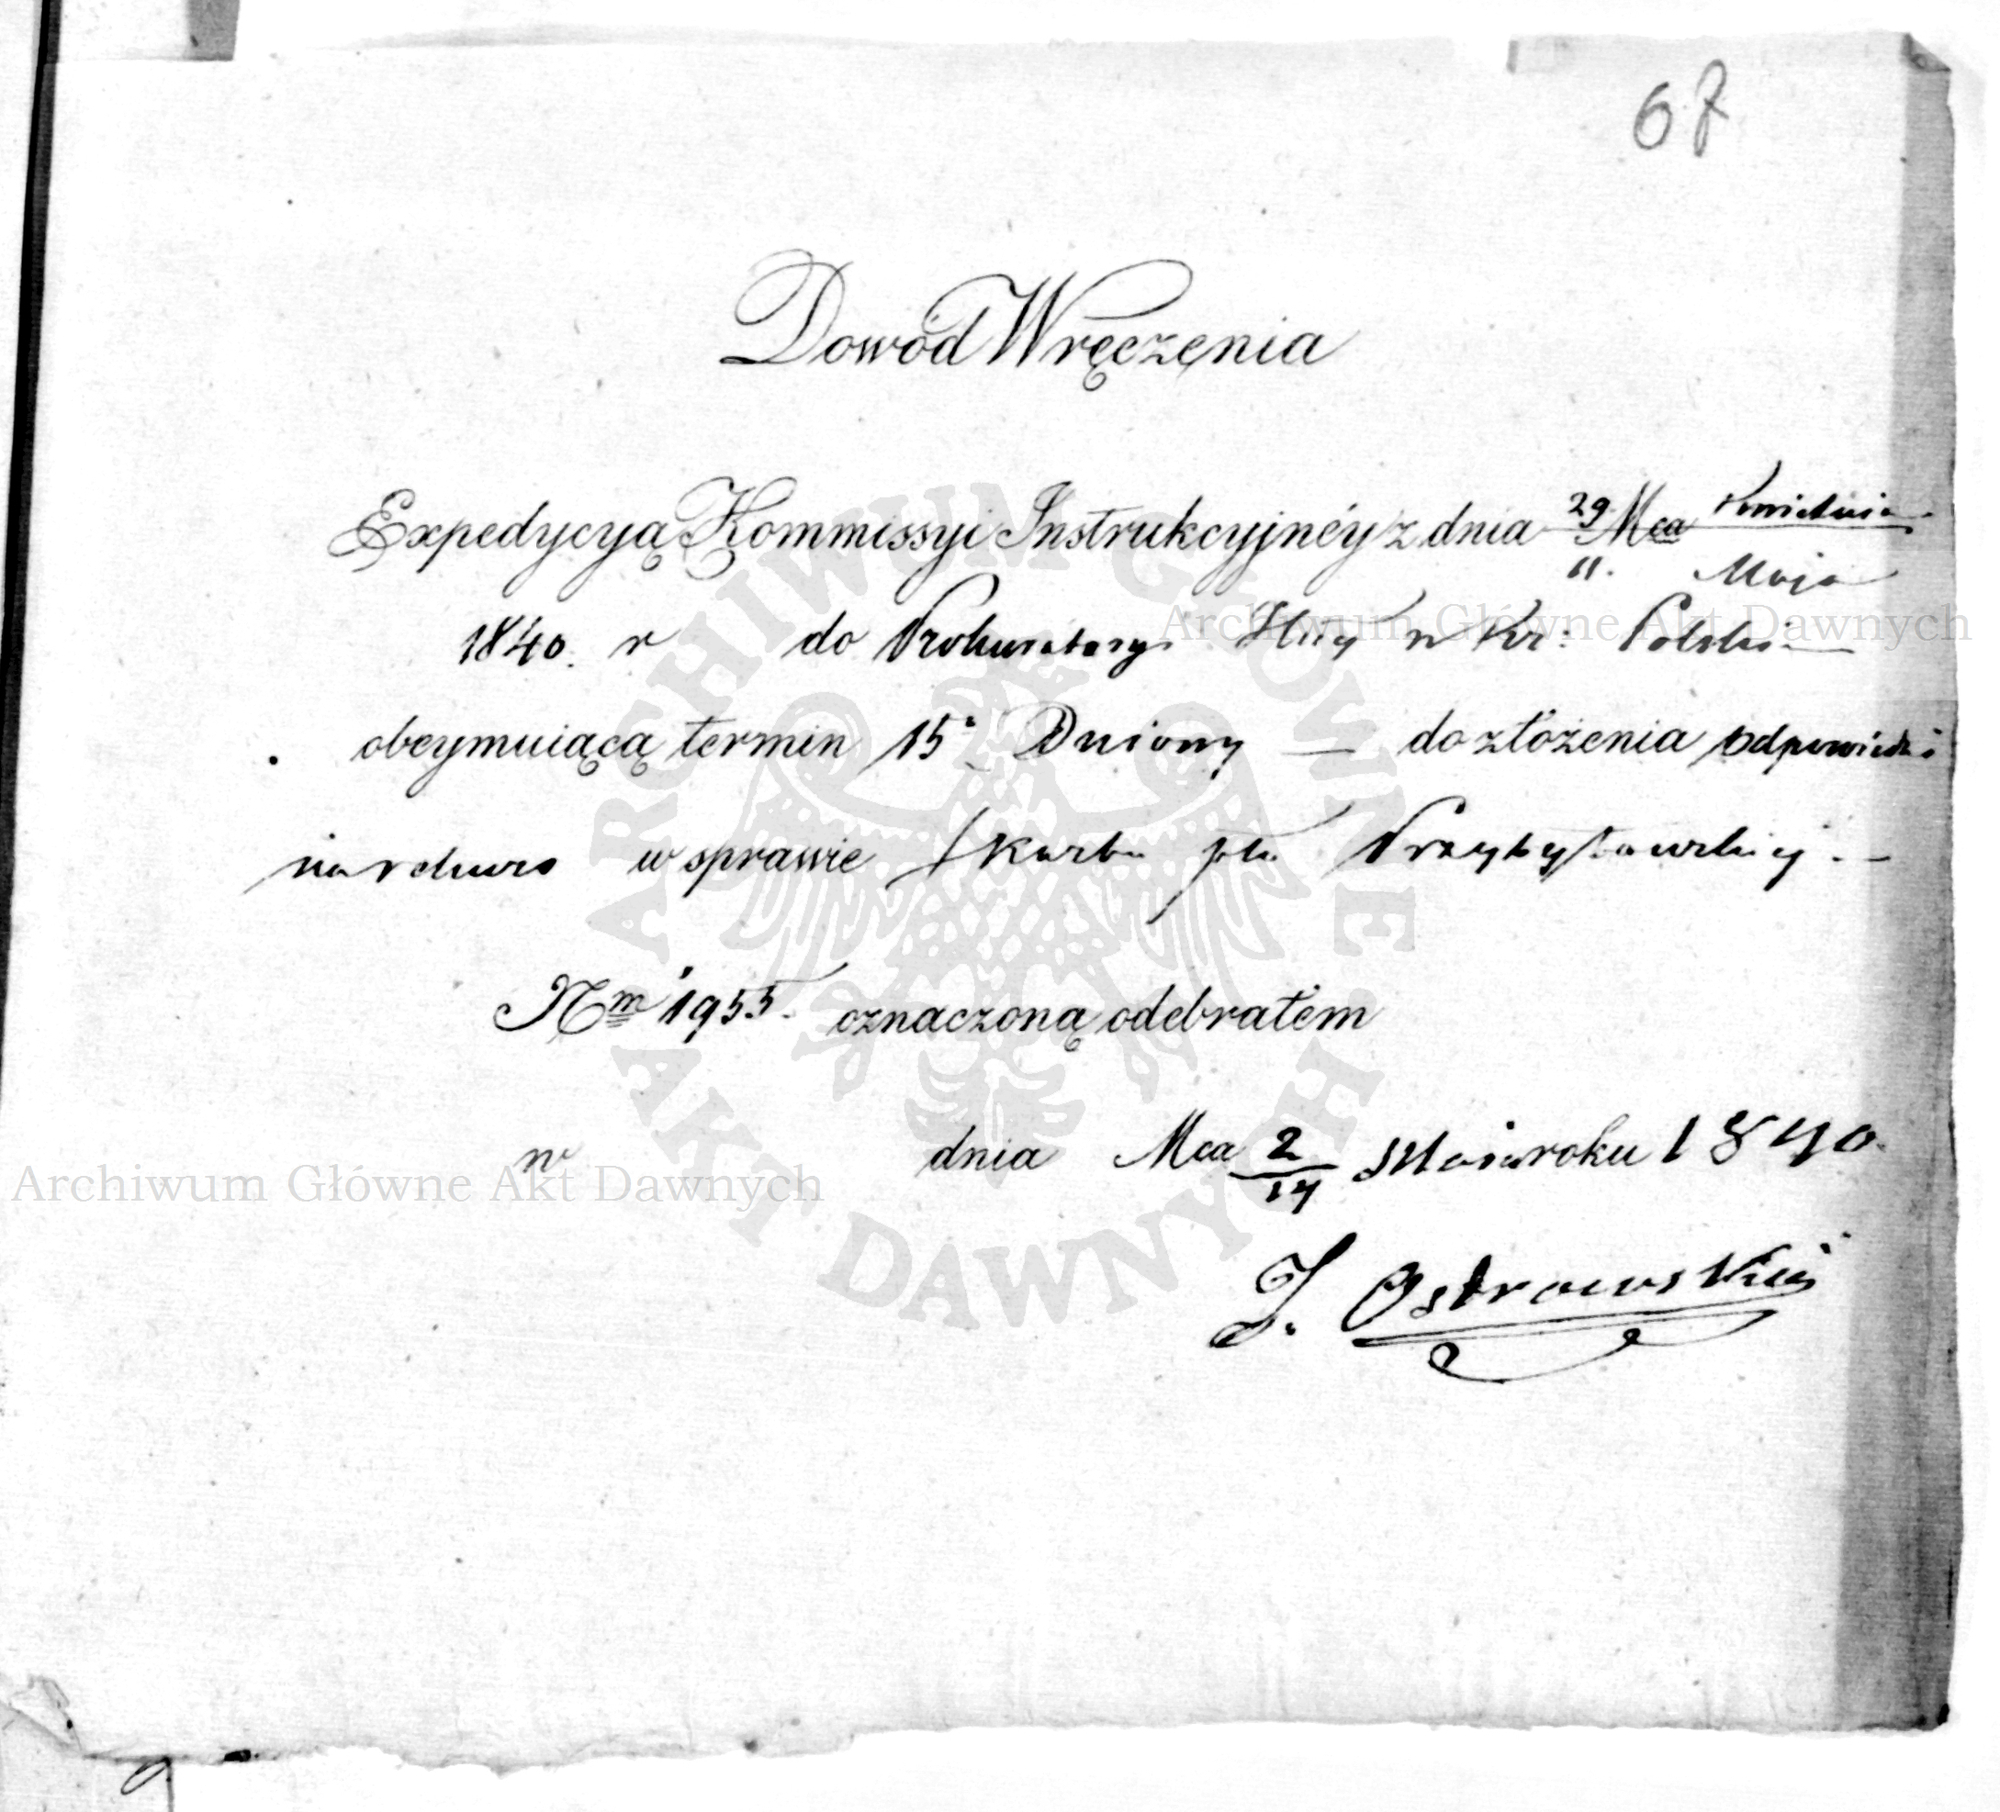 67
Dowód Wręczenia
Expedycyą Kommissyi Instrukcyjnéy z dnia 29/11. Mca Kwietnia/Maja
1840. r do Prokuratoryi w Kr: Polskim
obeymuiącą termin 15. Dniowy — do złożenia odpowiedzi
na rekurs w sprawie Skarbu Przybyławskiéj. —
Nm 1955. oznaczoną odebrałem
w dnia Mca 2/14 Maia roku 1840.
J. Ostrowski
ARCHIWUM GŁÓWNE AKT DAWNYCH
Archiwum Główne Akt Dawnych
Archiwum Główne Akt Dawnych